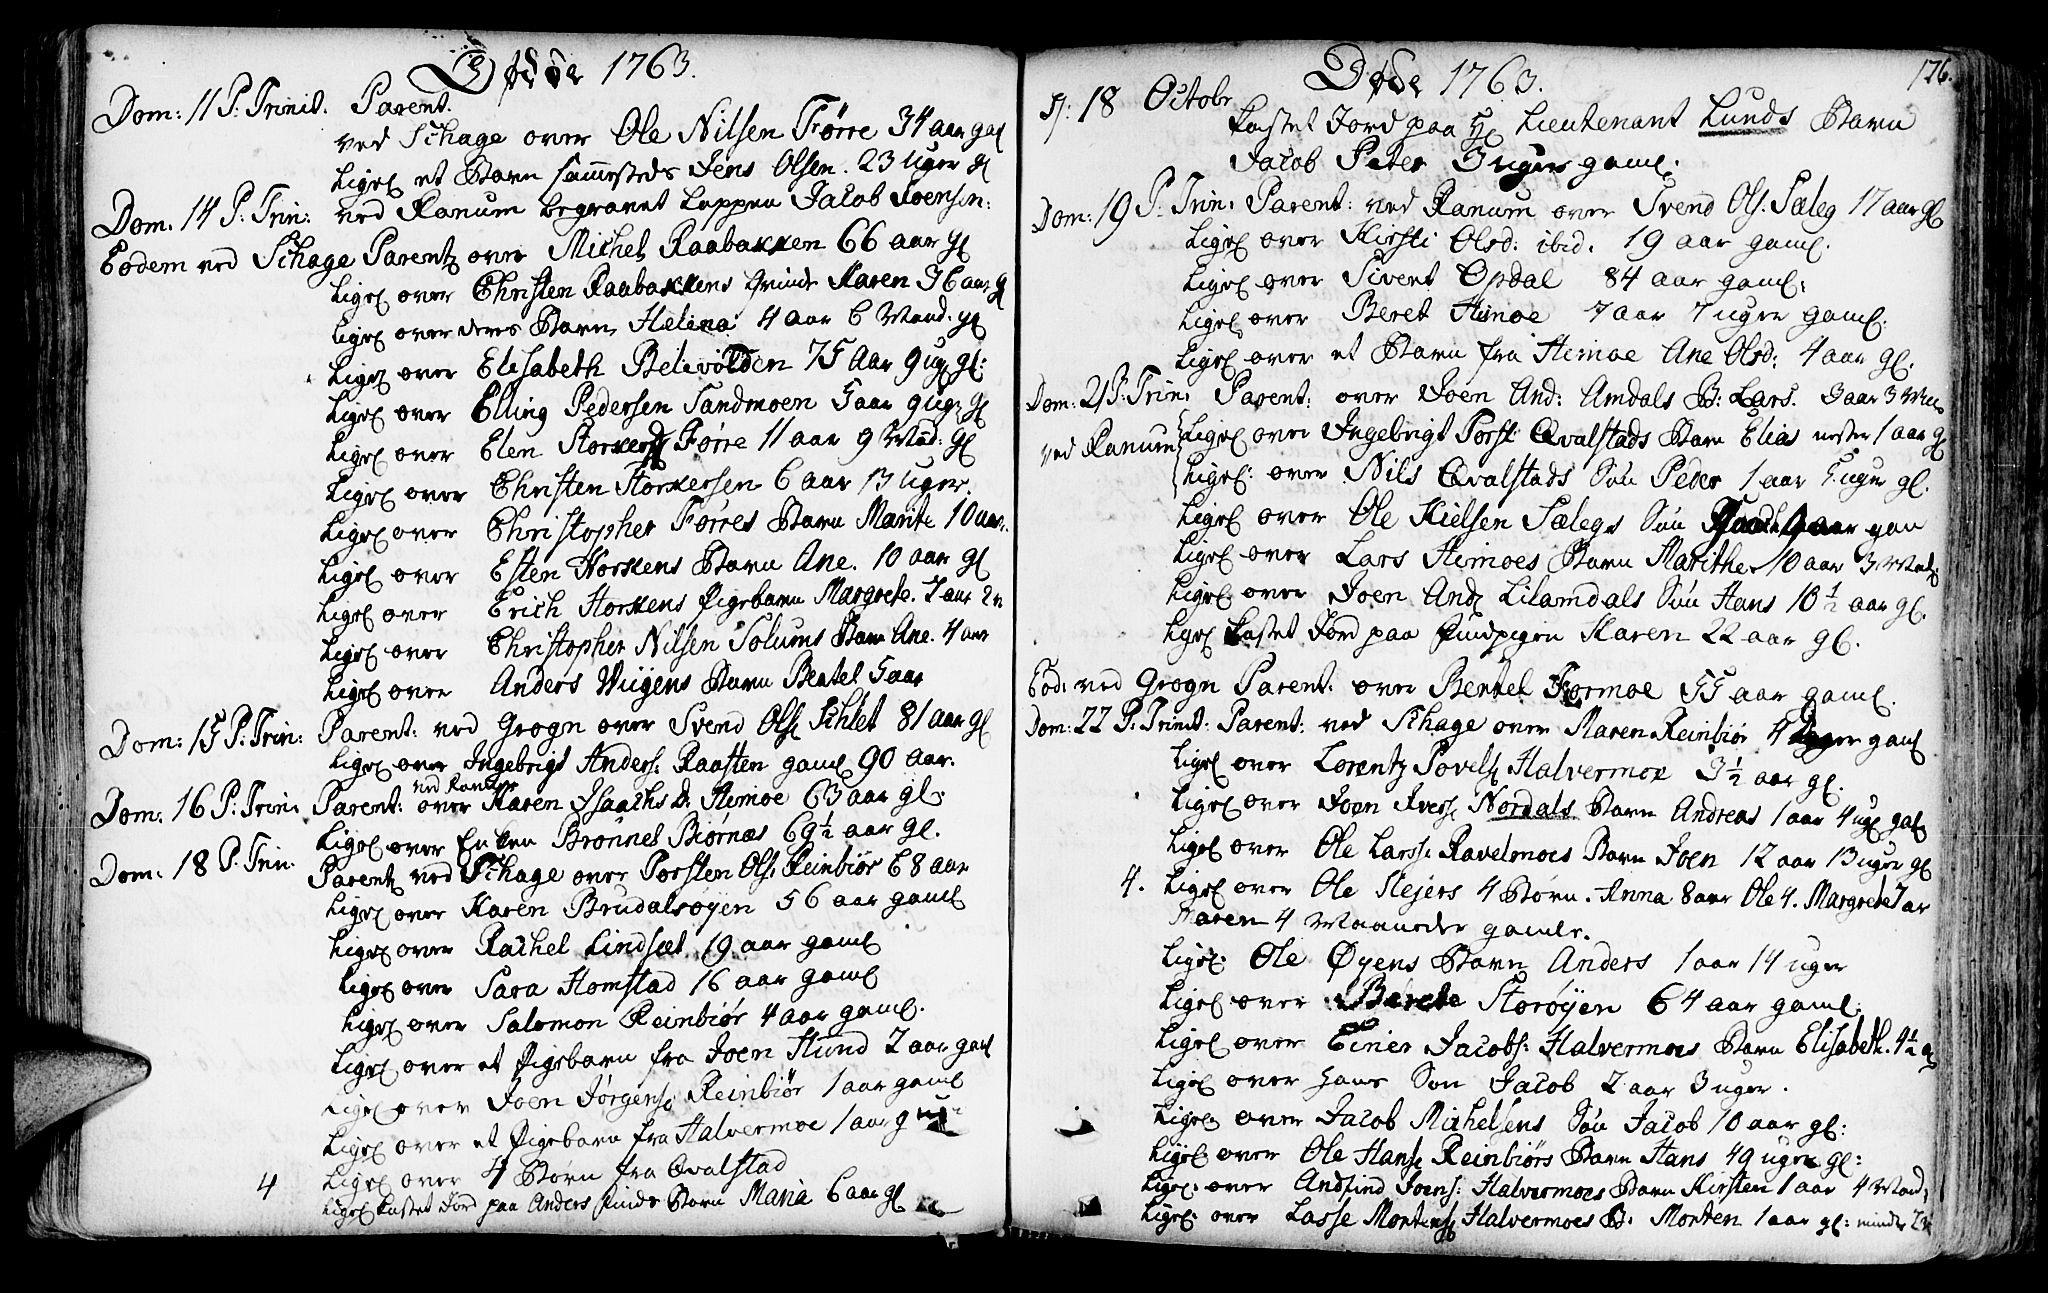 Døde 1763.
Dom: 11 P: Trinit. Parent.
ved Schage over Ole Nilsen Førre 34 aar gal
Ligel et Barn sammesteds Jens Olsen. 23 uger gl
Dom. 14 P: Trin: ved Ranum begravet Lappen Jacob Joensen:
Eodem ved Schage Parent over Michel Raabakken 66 aar gl
Ligel over Christen Raabakkens Qvinde Karen 36 aar gl
Ligel over deres Barn Helena 4 aar 6 Maan. gl
Ligel over Elisabeth Belivolden 75 aar 9 ug gl:
Ligel over Elling Pedersen Sandmoen 5 aar 9 ug: gl
Ligel over Elen Storkersd Førre 11 aar 9 Maan: gl
Ligel over Christen Storkersen 6 aar 13 uger.
Ligel over Christopher Førres Barn Marite 10 aar.
Ligel over Esten Horskens Barn Ane. 10 aar gl
Ligel over Erich Horskens Pigebarn Margrete. 7 aar
Ligel over Christopher Nilsen Solums Barn Ane. 4 aar
Ligel over Anders Wiigens Barn Bentel 5 aar
Dom: 15 P: Trin: Parent: ved Grogn over Svend Ols Schlet 81 aar gl
Ligel over Ingebrigt Anders: Raasten gaml 90 aar.
ved Ranum
Dom: 16 P: Trin: Parent: over Karen Isaachs D. Hemoe 63 aar gl.
Ligel over Enken Brønnel Biørnæs 69½ aar gl.
Dom: 18 P: Trin. Parent ved Schage over Torsten Ols: Reinbiør 68 aar
Ligel over Karen Brudalsøyen 56 aar gaml
Ligel over Rachel Lindset 19 aar gaml
Ligel over Sara Homstad 16 aar gaml
Ligel over Salomon Reinbiør 4 aar gaml.
Ligel over et Pigebarn fra Joen Hund 2 aar gaml
Ligel over Joen Jørgens: Reinbiør 1 aar gaml
Ligel over et Pigebarn fra Halvermoe 1 aar 9 ug:
4 Ligel over 4 Børn fra Qvalstad
Ligel Castet Jord paa Anders Finds Barn Maria 6 aar gl
Døde 1763.
176.
18 Octobr
Castet Jord paa Hr Lieutenant Lunds Barn
Jacob Peter 3 uger gaml.
Dom: 19 P. Trin: Parent: ved Ranum over Svend Ols: Sæleg 17 aar gl
Ligel over Kirsti Olsd: ibid. 19 aar gaml.
Ligel over Sivert Opdal 84 aar gaml:
Ligel over Beret Himoe 7 aar 7 uger gaml.
Ligel over et Barn fra Hemoe Ane Olsd: 4 aar gl.
Dom: 21 P: Trin: Parent: over Joen And: Amdals B: Lars. 3 aar 3
ved Ranum Ligel over Ingebrigt Torst: Qvalstads Barn Elias nesten 1 aar gl
Ligel: over Nils Qvalstads Søn Peder 1 aar 5 uger gl.
Ligel over Ole Kielsen Sælegs Søn 9 aar gam
Ligel over Lars Hemoes Barn Marithe 10 aar 3 Mad:
Ligel over Joen And: Lilamdals Søn Hans 10½ aar gl.
Ligel Castet Jord paa Findpigen Karen 22 aar gl.
Eod: ved Grogn Parent: over Bentel Formoe 55 aar gaml.
Dom: 22 P: Trinit: Parent: ved Schage over Maren Reinbiør 4 uger gaml
Ligel over Lorentz Povels: Halvermoe 3½ aar gl.
Ligel over Joen Ivers: Nordals Barn Andreas 1 aar 4 ug gal
Ligel over Ole Larss: Ravelmoes Barn Joen 12 aar 13 uger gl
4. Ligel over Ole Flejers 4 Børn. Anna 8 aar Ole 4. Margrete 7 ar
Karen 4 Maaneder gamle.
Ligel: Ole Øyens Barn Anders 1 aar 14 uger
Ligel over Berete Storøyen 64 aar gaml:
Ligel over Einer Jacobs: Halvermoes Barn Elisabeth. 4½ a
Ligel over hans Søn Jacob 2 aar 3 uger.
Ligel over Jacob Michelsens Søn Jacob 10 aar gl:
Ligel over Ole Hans: Reinbiørs Barn Hans 49 uger gl:
Ligel: over Andfind Joens: Halvermoes Barn Kirsten 1 aar 4 Maan:
Ligel: over Lasse Mortens: Halvermoes B: Morten 1 aar gl: minde